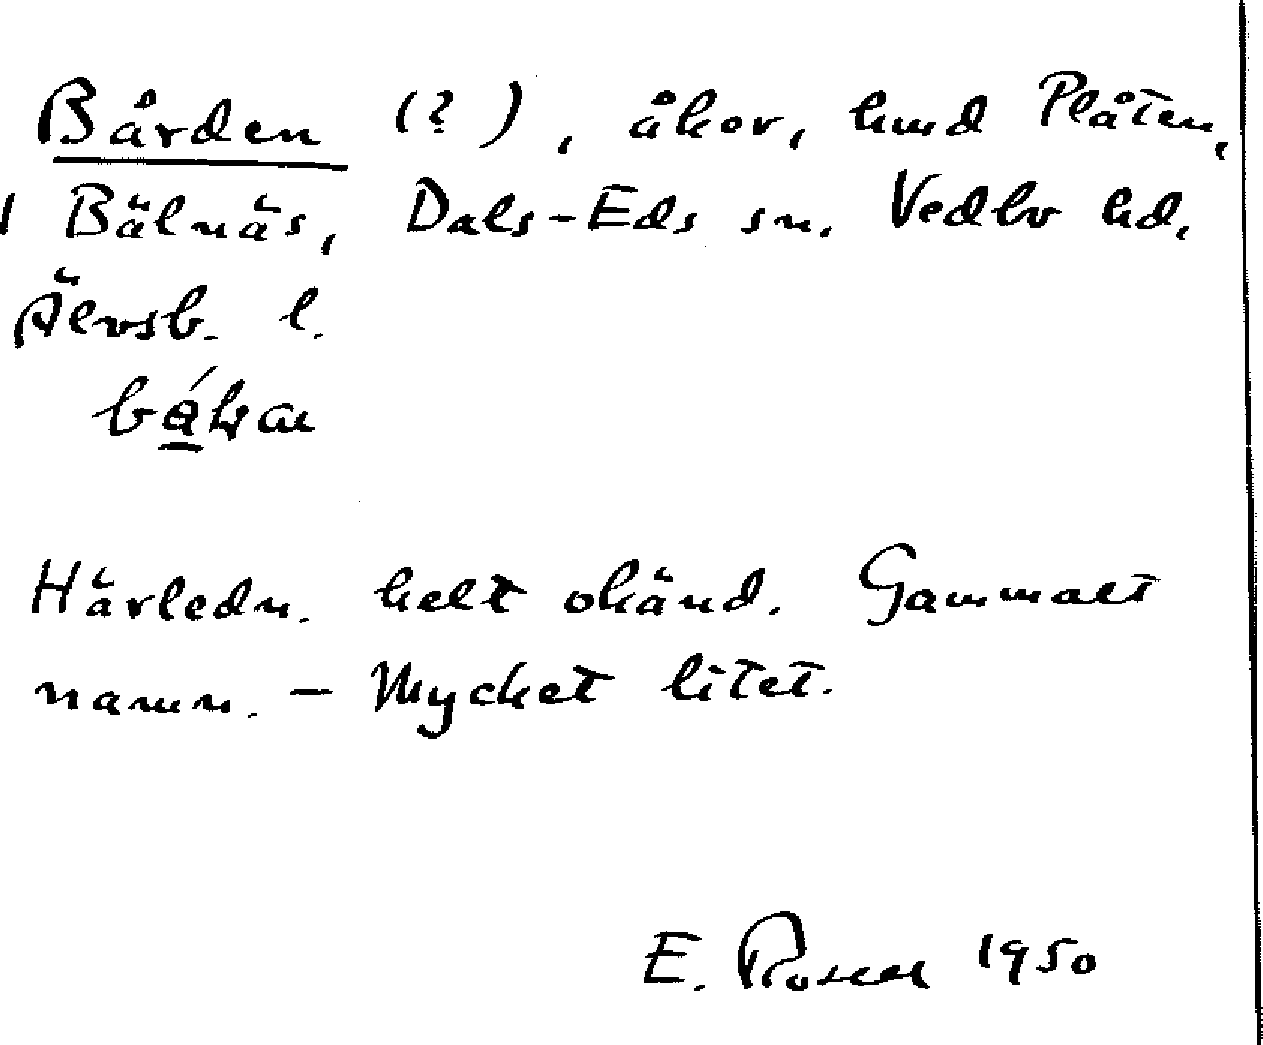 Bården (?), åker, hmd Plåten,
Bälnäs, Dals-Eds sn. Vedbo hd,
Älvsb. l.
Härledn. helt okänd. Gammalt
namn. – Mycket litet.
E. 1950